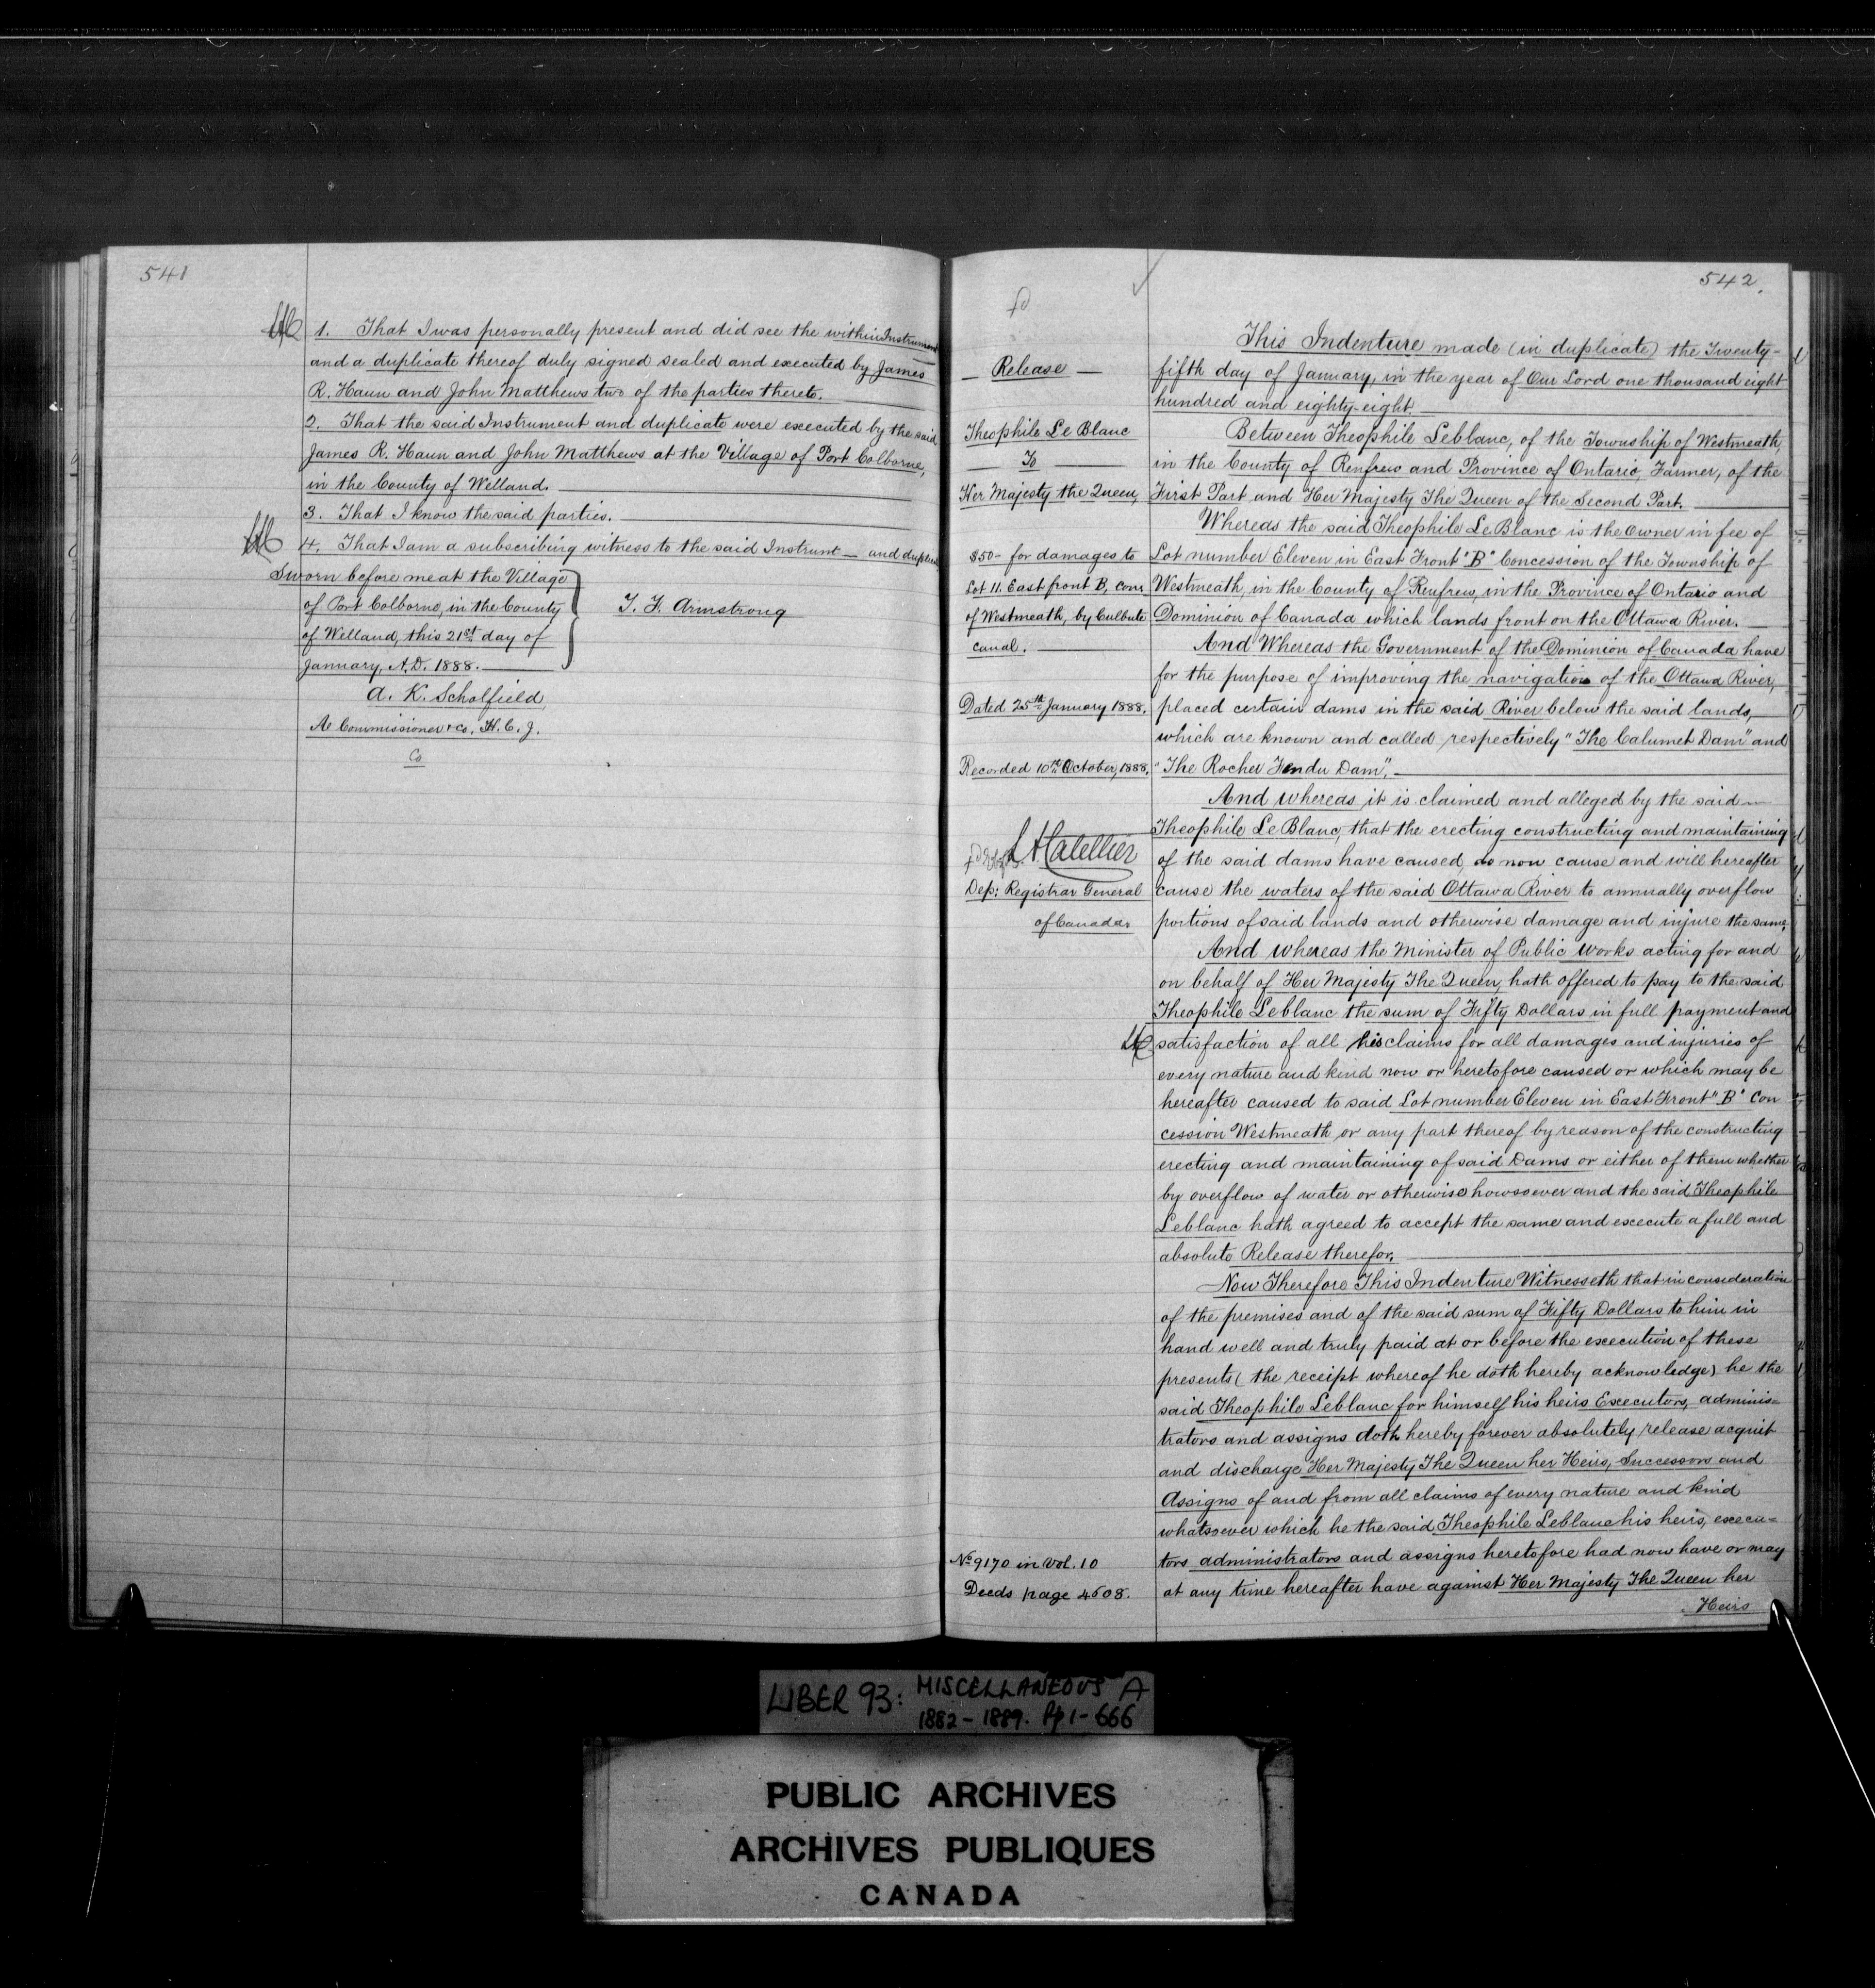 541
1. That I was personally present and did see the within Instrument
and a duplicate thereof duly signed sealed and executed by James
R. Haun and John Matthews two of the parties thereto.
2. That the said Instrument and duplicate were executed by the said
James R. Haun and John Matthews at the Village of Port Colborne,
in the County of Welland.
3. That I know the said parties.
4. That I am a subscribing witness to the said Instrunt and
Sworn before me at the Village
of Port Colborne, in the County
of Welland, this 21st day of
January, A.D. 1888.
T. F. Armstrong
A. K. Scholfield,
A Commissioner &co. H. C. J.
Co
542.
Release
Theophile Le Blanc
To
Her Majesty the Queen,
$50- for damages to
Lot 11. East front B, Conn
of Westmeath, by Culbute
Canal.
Dated 25th January 1888.
Recorded 10th October, 1888.
Dep: Registrar General
of Canada
No 9170 in Vol. 10
Deeds page 4508.
This Indenture made (in duplicate) the Twenty-
fifth day of January, in the year of Our Lord one thousand eight
hundred and eighty-eight.
Between Theophile Leblanc, of the Township of Westmeath,
in the County of Renfrew and Province of Ontario, Farmer, of the
First Part and Her Majesty The Queen of the Second Part.
Whereas the said Theophile LeBlanc is the Owner in fee of
Lot number Eleven in East Front "B" Concession of the Township of
Westmeath, in the County of Renfrew, in the Province of Ontario and
Dominion of Canada which lands front on the Ottawa River.
And Whereas the Government of the Dominion of Canada have
for the purpose of improving the navigation of the Ottawa River,
placed certain dams in the said River below the said lands,
which are known and called respectively "The Calumet Dam" and
"The Rocher Fendu Dam".
And whereas it is claimed and alleged by the said
Theophile Le Blanc, that the erecting constructing and maintaining
of the said dams have caused, do now cause and will hereafter
cause the waters of the said Ottawa River to annually overflow
portions of said lands and otherwise damage and injure the same,
And whereas the Minister of Public Works acting for and
on behalf of Her Majesty The Queen, hath offered to pay to the said
Theophile Leblanc the sum of Fifty Dollars in full payment and
satisfaction of all his claims for all damages and injuries of
every nature and kind now or heretofore caused or which may be
hereafter caused to said Lot number Eleven in East Front "B" Con
cession Westmeath or any part thereof by reason of the constructing
erecting and maintaining of said Dams or either of them whether
by overflow of water or otherwise howsoever and the said Theophile
Leblanc hath agreed to accept the same and execute a full and
absolute Release therefor.
Now Therefore This Indenture Witnesseth that in consideration
of the premises and of the said sum of Fifty Dollars to him in
hand well and truly paid at or before the execution of these
presents (the receipt whereof he doth hereby acknowledge) he the
said Theophile Leblanc for himself his heirs Executors, adminis=
trators and assigns doth hereby forever absolutely release acquit
and discharge Her Majesty The Queen her Heirs, Successors and
Assigns of and from all claims of every nature and kind
whatsoever which he the said Theophile Leblanc his heirs, execu=
tors administrators and assigns heretofore had now have or may
at any time hereafter have against Her Majesty The Queen her
Heirs
LIBER 93: MISCELLANEOUS A
1882-1889. Pp 1-666
PUBLIC ARCHIVES
ARCHIVES PUBLIQUES
CANADA